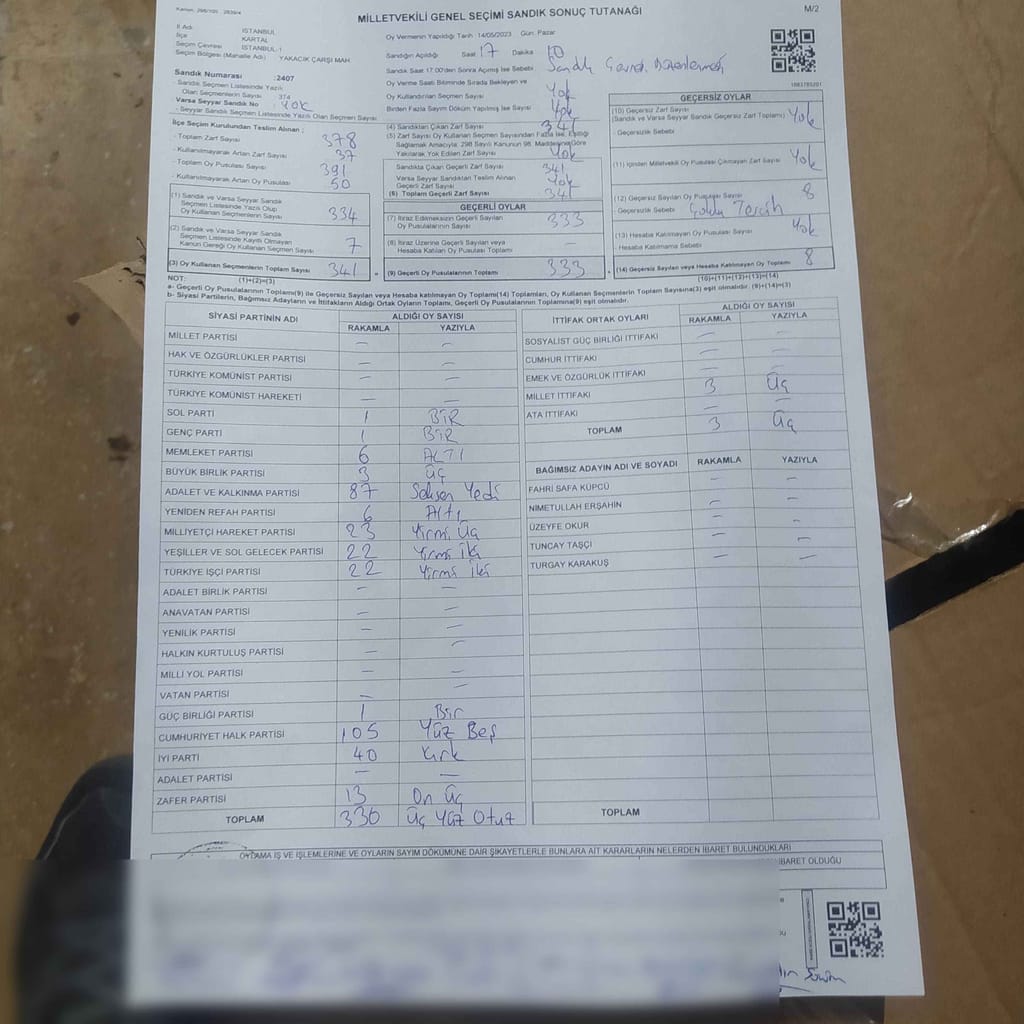 MİLLETVEKİLİ GENEL SEÇİMİ SANDIK SONUÇ TUTANAĞI
M/2
İl Adı İSTANBUL
İlçe KARTAL
Seçim Çevresi İSTANBUL-1
Seçim Bölgesi (Mahalle Adı) YAKACIK ÇARŞI MAH
Sandık Numarası :2407
Sandık Seçmen Listesinde Yazılı
Olan Seçmenlerin Sayısı : 374
Varsa Seyyar Sandık No : Yok
- Seyyar Sandık Seçmen Listesinde Yazılı Olan Seçmen Sayısı
İlçe Seçim Kurulundan Teslim Alınan ;
- Toplam Zarf Sayısı 378
- Kullanılmayarak Artan Zarf Sayısı 37
- Toplam Oy Pusulası Sayısı 391
- Kullanılmayarak Artan Oy Pusulası 50
(1) Sandık ve Varsa Seyyar Sandık
Seçmen Listesinde Yazılı Olup
Oy Kullanan Seçmenlerin Sayısı 334
(2) Sandık ve Varsa Seyyar Sandık
Seçmen Listesinde Kayıtlı Olmayan
Kanun Gereği Oy Kullanan Seçmen Sayısı 7
(3) Oy Kullanan Seçmenlerin Toplam Sayısı 341
(1)+(2)=(3)
Oy Vermenin Yapıldığı Tarih 14/05/2023 Gün: Pazar
Sandığın Açıldığı Saat 17 Dakika 10
Sandık Saat 17:00'den Sonra Açılmış İse Sebebi Sandık
Oy Verme Saati Bitiminde Sırada Bekleyen ve
Oy Kullandırılan Seçmen Sayısı Yok
Birden Fazla Sayım Döküm Yapılmış İse Sayısı Yok
(4) Sandıktan Çıkan Zarf Sayısı 341
(5) Zarf Sayısı Oy Kullanan Seçmen Sayısından Fazla İse, Eşitliği
Sağlamak Amacıyla; 298 Sayılı Kanunun 98. Maddesine Göre
Yakılarak Yok Edilen Zarf Sayısı Yok
Sandıkta Çıkan Geçerli Zarf Sayısı 341
Varsa Seyyar Sandıktan Teslim Alınan
Geçerli Zarf Sayısı Yok
(6) Toplam Geçerli Zarf Sayısı 341
GEÇERLİ OYLAR
(7) İtiraz Edilmeksizin Geçerli Sayılan
Oy Pusulasının Sayısı 333
(8) İtiraz Üzerine Geçerli Sayılan veya
Hesaba Katılan Oy Pusulası Toplamı –
(9) Geçerli Oy Pusulalarının Toplamı 333
GEÇERSİZ OYLAR
(10) Geçersiz Zarf Sayısı
(Sandık ve Varsa Seyyar Sandık Geçersiz Zarf Toplamı) Yok
- Geçersizlik Sebebi
(11) İçinden Milletvekili Oy Pusulası Çıkmayan Zarf Sayısı Yok
(12) Geçersiz Sayılan Oy Pusulası Sayısı 8
Geçersizlik Sebebi Çoklu Tercih
(13) Hesaba Katılmayan Oy Pusulası Sayısı Yok
- Hesaba Katılmama Sebebi
(14) Geçersiz Sayılan veya Hesaba Katılmayan Oy Toplamı 8
(10)+(11)+(12)+(13)=(14)
NOT:
a- Geçerli Oy Pusulalarının Toplamı(9) ile Geçersiz Sayılan veya Hesaba katılmayan Oy Toplam(14) Toplamları, Oy Kullanan Seçmenlerin Toplam Sayısına(3) eşit olmalıdır. (9)+(14)=(3)
b- Siyasi Partilerin, Bağımsız Adayların ve İttifakların Aldığı Ortak Oyların Toplamı, Geçerli Oy Pusulalarının Toplamına(9) eşit olmalıdır.
SİYASİ PARTİNİN ADI ALDIĞI OY SAYISI
RAKAMLA YAZIYLA
MİLLET PARTİSİ – –
HAK VE ÖZGÜRLÜKLER PARTİSİ – –
TÜRKİYE KOMÜNİST PARTİSİ – –
TÜRKİYE KOMÜNİST HAREKETİ – –
SOL PARTİ 1 BİR
GENÇ PARTİ 1 BİR
MEMLEKET PARTİSİ 6 ALTI
BÜYÜK BİRLİK PARTİSİ 3 üç
ADALET VE KALKINMA PARTİSİ 87 Seksen Yedi
YENİDEN REFAH PARTİSİ 6 Altı
MİLLİYETÇİ HAREKET PARTİSİ 23 Yirmi Üç
YEŞİLLER VE SOL GELECEK PARTİSİ 22 Yirmi İki
TÜRKİYE İŞÇİ PARTİSİ 22 Yirmi İki
ADALET BİRLİK PARTİSİ – –
ANAVATAN PARTİSİ – –
YENİLİK PARTİSİ – –
HALKIN KURTULUŞ PARTİSİ – –
MİLLİ YOL PARTİSİ – –
VATAN PARTİSİ – –
GÜÇ BİRLİĞİ PARTİSİ 1 Bir
CUMHURİYET HALK PARTİSİ 105 Yüz Beş
İYİ PARTİ 40 Kırk
ADALET PARTİSİ – –
ZAFER PARTİSİ 13 On Üç
TOPLAM 330 Üç Yüz Otuz
İTTİFAK ORTAK OYLARI ALDIĞI OY SAYISI
RAKAMLA YAZIYLA
SOSYALİST GÜÇ BİRLİĞİ İTTİFAKI – –
CUMHUR İTTİFAKI – –
EMEK VE ÖZGÜRLÜK İTTİFAKI – –
MİLLET İTTİFAKI 3 Üç
ATA İTTİFAKI – –
TOPLAM 3 Üç
BAĞIMSIZ ADAYIN ADI VE SOYADI RAKAMLA YAZIYLA
FAHRİ SAFA KÜPCÜ – –
NİMETULLAH ERŞAHİN – –
ÜZEYFE OKUR – –
TUNCAY TAŞÇI – –
TURGAY KARAKUŞ – –
TOPLAM
OYLAMA İŞ VE İŞLEMLERİNE VE OYLARIN SAYIM DÖKÜMÜNE DAİR ŞİKAYETLERLE BUNLARA AİT KARARLARIN NELERDEN İBARET BULUNDUKLARI
İBARET OLDUĞU